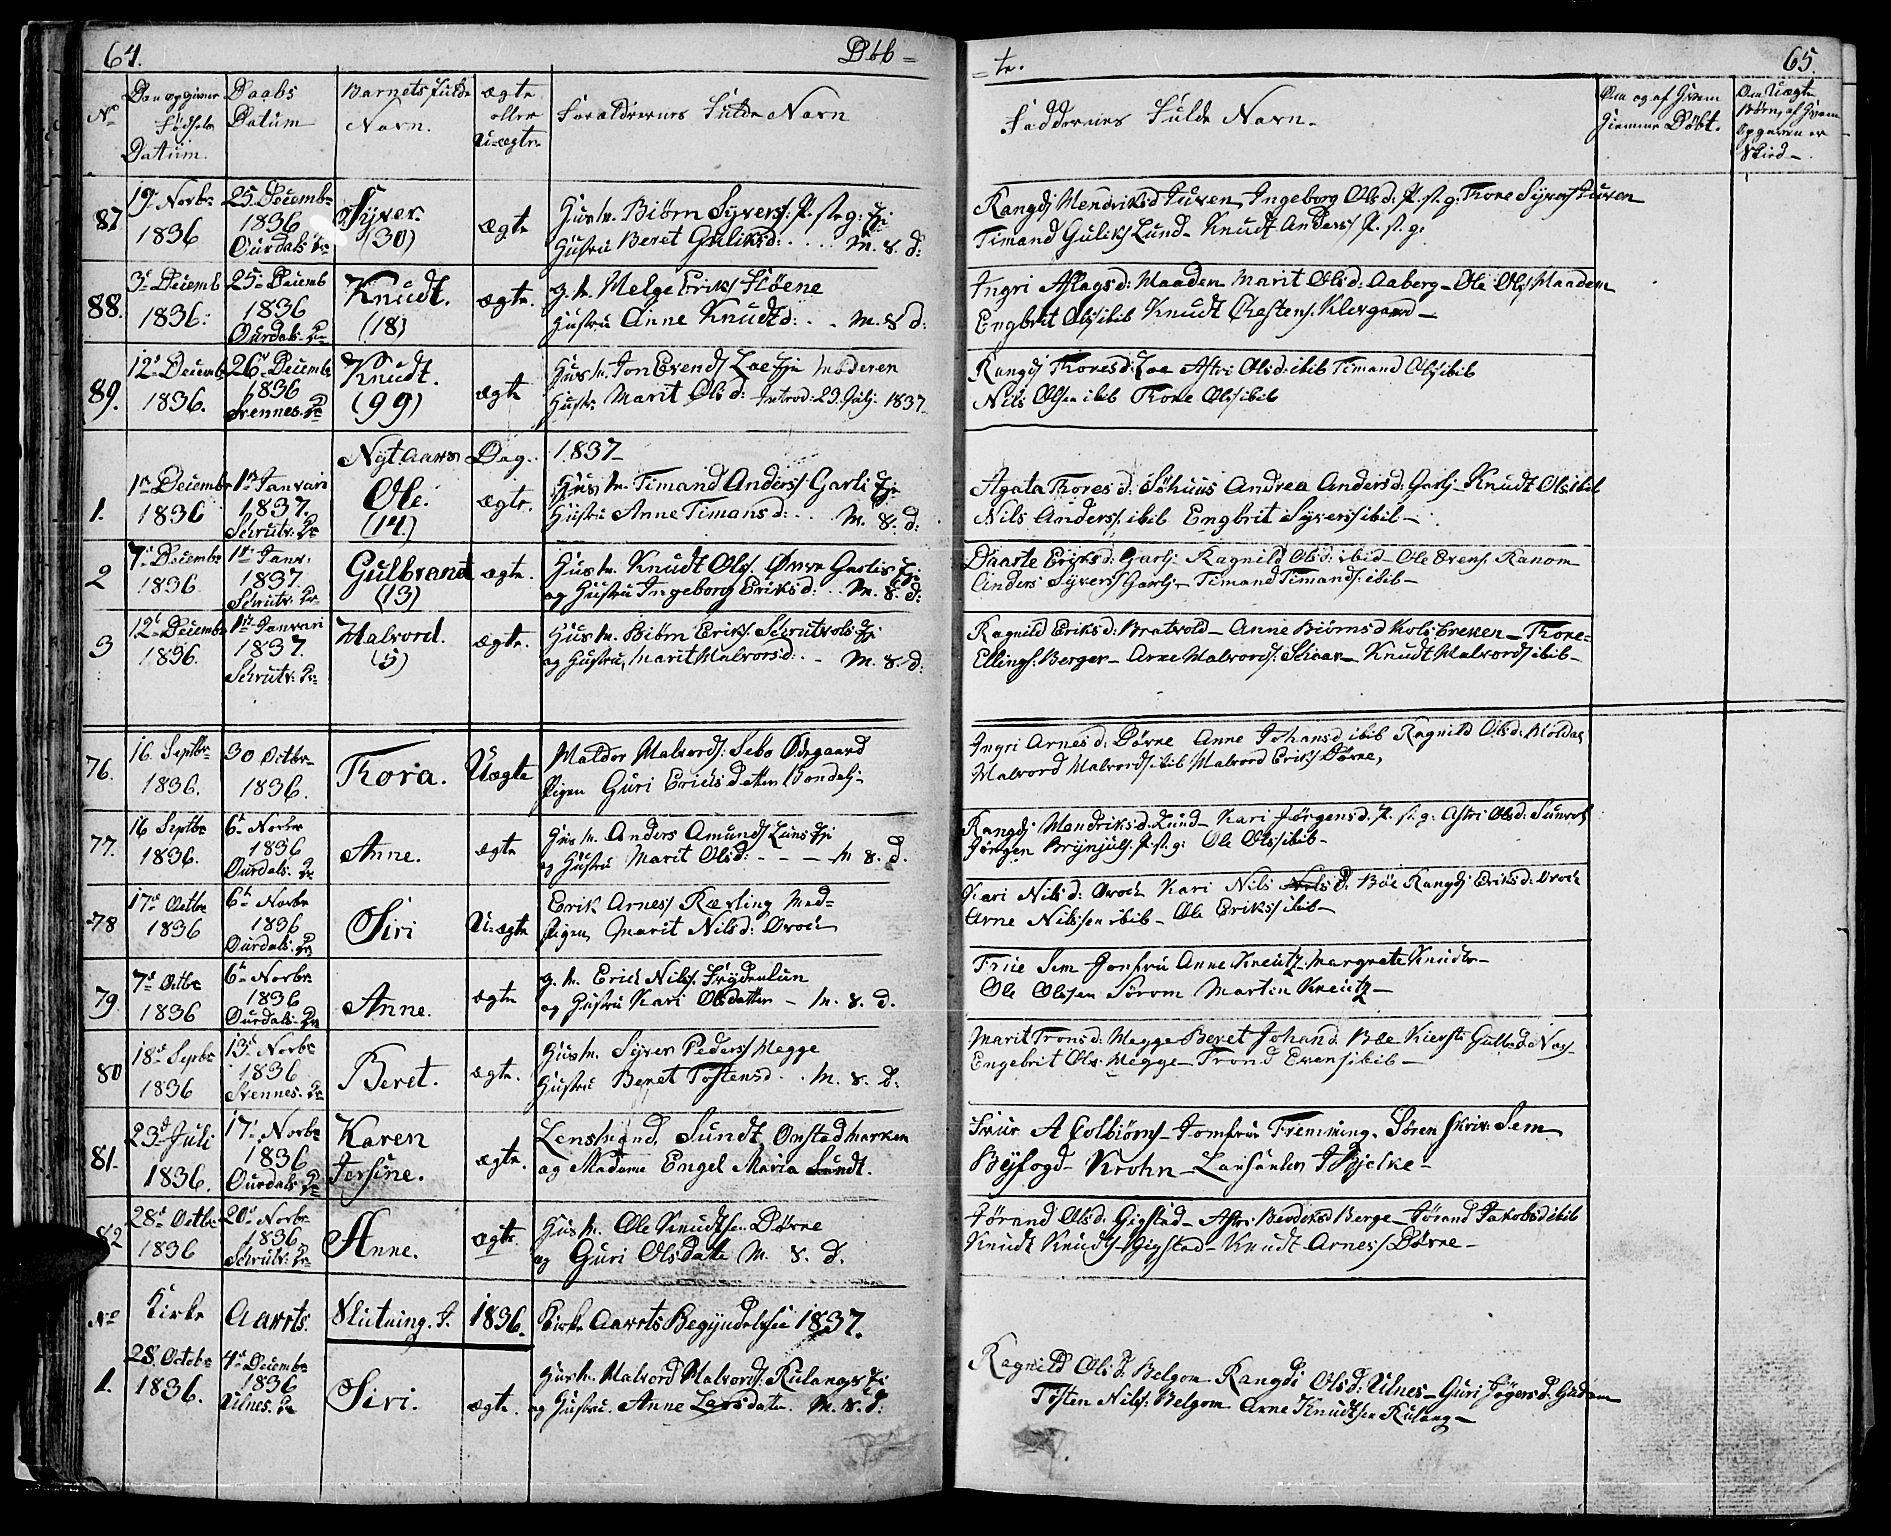 64. Døb=
No Den opgivne Fødsels Datum. Daabs Datum Barnets fulde Navn. ægte eller U=ægte Foraldrernes Fulde Navn
87. 19 Novbr 1836 25 Decembr 1836 Ourdals Syver. (30) ægte
Husm. Biørn Syvers: P. st. g:
Hustru Beret Guliksd: . . . M. & d:
88. 3 Decemb 1836: 25 Decemb 1836 Ourdals Knudt. (18) ægte.
g. m. Helge Eriks Fløene
Hustru Anne Knudtd: . . M. & d:
89. 12 Decemb 1836. 26 Decemb 1836 Svennes Knudt. (99) ægte
Husm. Jon Evends Loe Moderen
Hustr: Marit Olsd: Introd: 29 1837
Nyt Aars Dag. 1837
1. 1 Decembr 1836 1 Januari 1837. Schrutv: Ole. (14.) ægte.
Husm. Timand Anders Garli
Hustru Anne Timansd: . . M. & d:
2 7 Decembr 1836 1 Janr. 1837 Schrutv: Gulbrand (13) ægte.
Husm. Knudt Ols. Øvre Garlie
og Hustru Ingeborg Eriksd: . . M. & d:
3 12 Decembr 1836. 1 Januari 1837. Schrutv: Halvord. (5) ægte.
Husm. Biørn Eriks. Schrutvols
og Hustru, Marit Halvorsd: . . M. & d:
76. 16. Septbr 1836. 30 Octbr 1836. Thora. Uægte
Haldor Halvords: Sebo Ødegaard
Pigen Guri Erichsdatter
77. 16 Septbr 1836. 6 Novbr 1836 Ourdals. Anne. ægte
Husm. Anders Amunds Luns
og Hustru Marit Olsd: - - - M & d.
78 17 Octbr 1836 6 Novbr 1836 Ourdals. Siri U=ægte
Erik Arness Ræsling Med=
Pigen, Marit Nilsd:
79. 7 Octbr 1836 6 Novbr 1836 Ourdals Anne. ægte
g. m. Erich Nils. Frydenlun
og Hustru Kari Olsdatter - M. & d.
80 18 Sepbr 1836 13 Novbr 1836 Svennes. Beret. ægte.
Husm. Syver Peders Hegge
Hustru Beret Tostensd. . M. & d.
81. 23 Juli 1836. 17 Novbr 1836 Ourdals Karen Jersine. ægte.
Lensmand, Sundt Onstadmarken
og Madame Engel Maria Sundt.
82 28 Octbr 1836 20 Novbr 1836 Schrutv: Anne. ægte.
Husm. Ole Knudtsen Dørne
og Guri Olsdatte M. & d.
No Kirke Aarets. Slutning. I. 1836. Kirke Aarets Begyndelsee 1837.
1. 28 Octobr 1836. 4 Decembr 1836 Ulnes. Siri. ægte.
Husm. Halvord Halvords: Rulangs
og Hustru. Anne Larsdatter. M. & d:
=te. 65.
Faddernes Fulde Navn.
Om og af Hvem Hiemme Døbt.
Om Uægte Børn, af Hvem Opgaven er skeed.
Rangdj Hendriksd Juven, Ingeborg Olsd: P. st. g: Thore Syvers Juven
Timand Guliks Lund - Knudt Anders P. st. g:
Ingri Aslagsd: Maaden Marit Olsd: Aaberg - Ole Ols Maaden
Engbrit Ols ibib Knudt Chestens. Klevgaard -
Rangdj Thoresd: Loe Astri Olsd: ibib Timand Ols ibib
Nils Olsen ibib Thore Ols ibib
Agata Thoresd: Søhuus Andrea Andersd: Garlj - Knudt Ols ibib
Nils Anders. ibib Engbrit Syvers ibib -
Daarte Eriksd: Garlj Ragnild Olsd: ibid - Ole Evens. Ranom
Anders Syvers Garlj - Timand Timands. ibib -
Ragnild Eriksd: Bratvold - Anne Biørnsd Kolsbreken - Thore
Ellings: Berger - Arne Halvords. Skoar - Knudt Halvords ibib -
Ingri Arnesd: Dørne Anne Johansd ibib Ragnild Olsd:
Halvord Halvords ibib Halvord Eriks Dørne,
Rangdj Hendriksd. Lund - Kari Jørgensd. P. st. g: Astri Olsd:
Jørgen Brynjuls: P. st. g: Ole Ols ibib -
Kari Nilsd: Kari Nils d: Bøe Rangdj Eriksd:
Arne Nilssen ibib - Ole Eriks ibib -
Frue Sem Jomfru Anne Kreutz - Margrete Knudtr -
Ole Olssen Sørom Martin Kreutz -
Marit Tronsd: Hegge Beret Johand. Bøe Kiersti
Engebrit Ols: Hegge - Trond Evens ibib -
Frue A Colbiørns - Jomfrue Fremming. Søren Skriv: Sem
Byfogd - Krohn - J Bjelke -
Jørand Olsd: Gigstad - Astri Berge - Jørand Jakobsd ibib
Knudt Knudts - Gigstad - Knudt Arness Dørne -
Ragnild Olsd: Belgom - Rangdi Olsd: Ulnes - Guri
Tosten Nils: Belgom Arne Knudtsen Rulang -